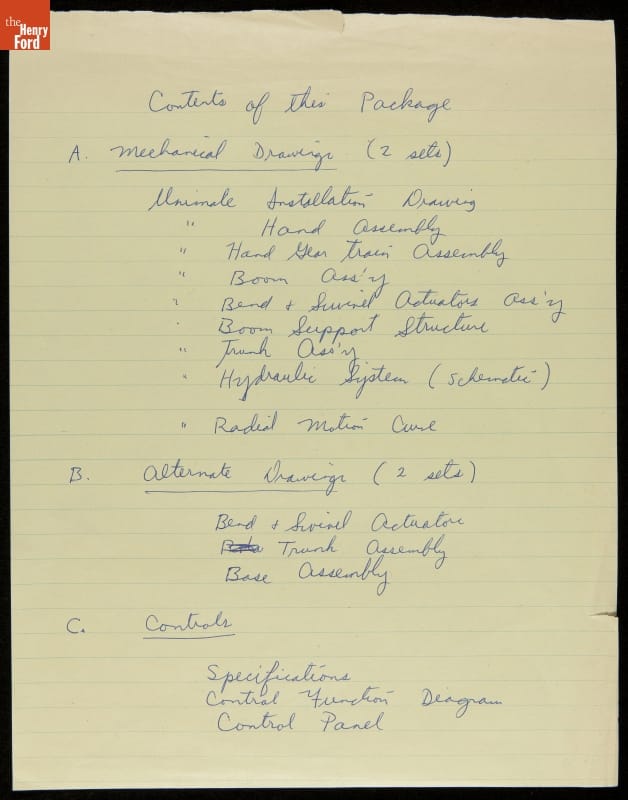 the
Henry
Ford
Contents of this Package
A. Mechanical Drawings (2 sets)
Unimate Installation Drawing
" Hand Assembly
" Hand Gear train Assembly
" Boom Ass'y
" Bend & Swivel Actuators Ass'y
" Boom Support Structure
" Trunk Ass'y
" Hydraulic System (schematic)
" Radial Motion Curve
B. Alternate Drawings (2 sets)
Bend & Swivel Actuator
Trunk Assembly
Base Assembly
C. Controls
Specifications
Control Function Diagram
Control Panel